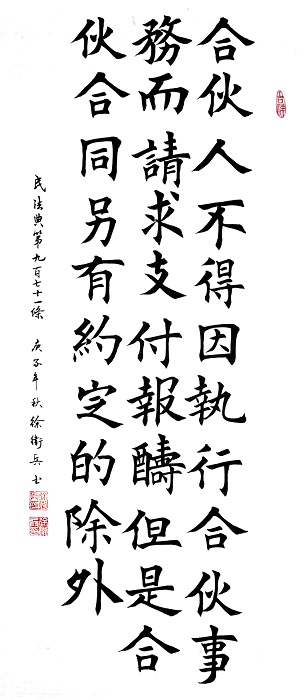 合伙人不得因執行合伙事
務而請求支付報酬但是合
伙合同另有約定的除外
民法典第九百七十一條 庚子年秋徐衛兵書